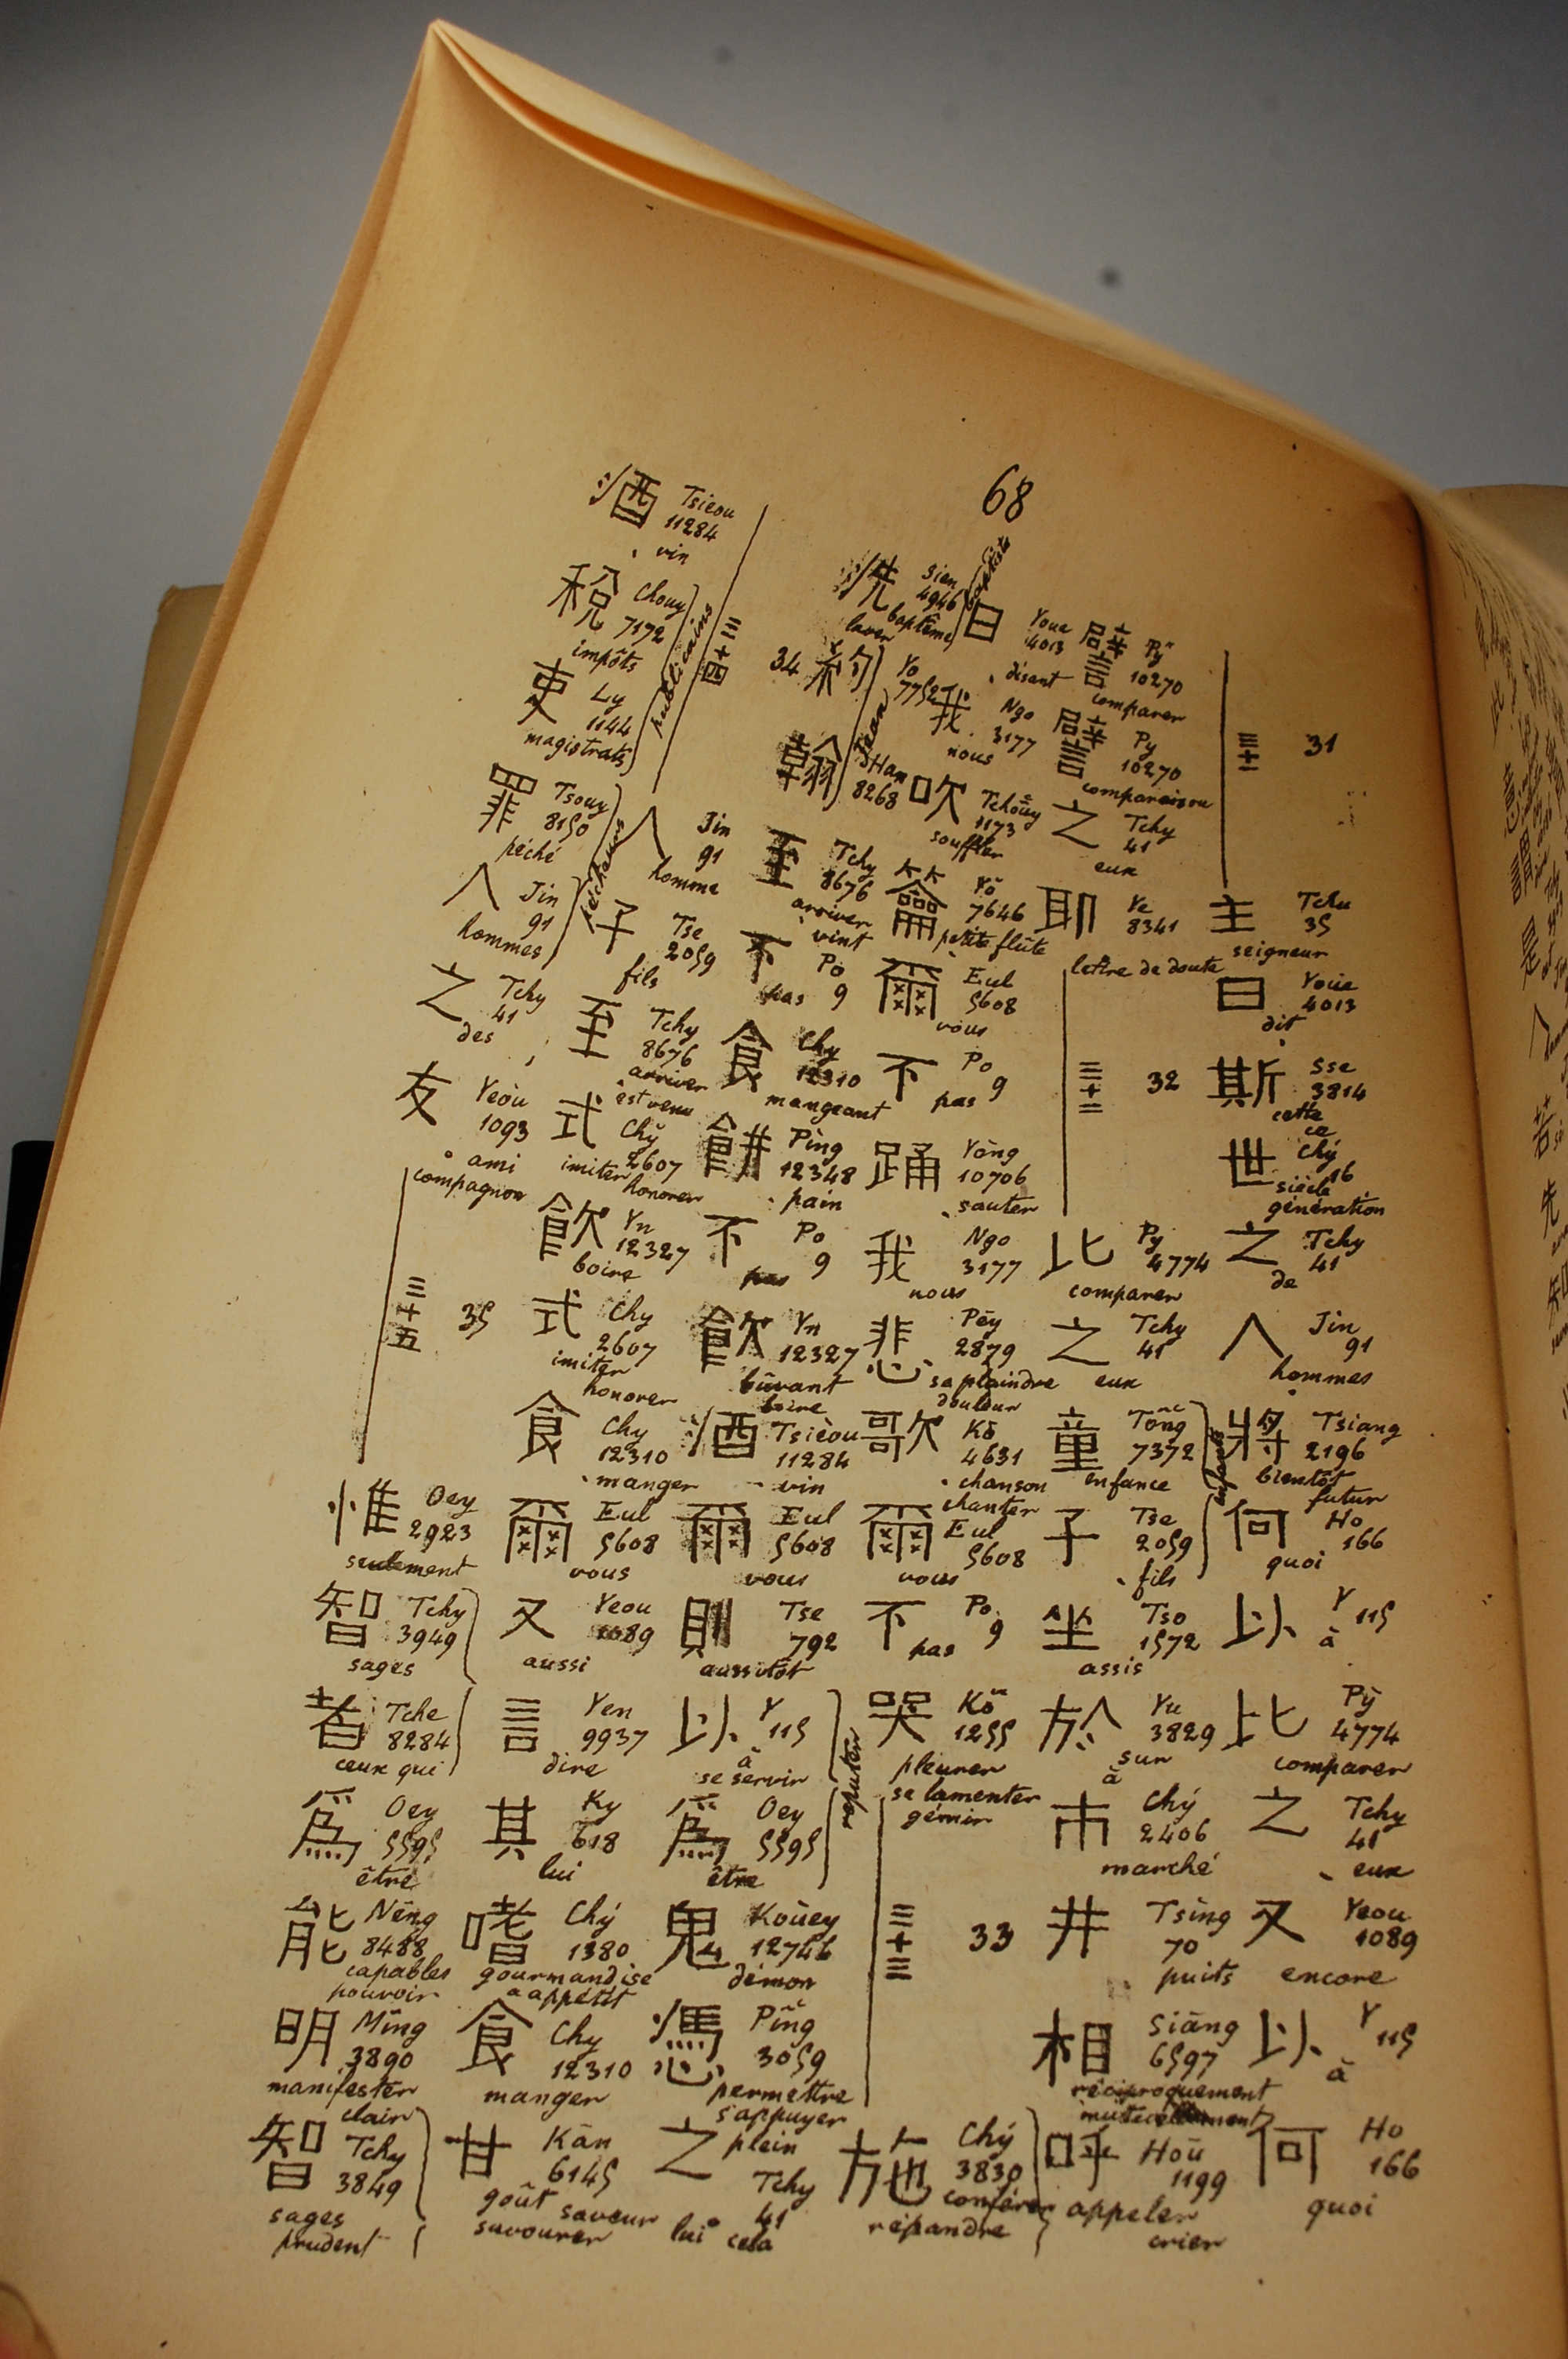 68
三十一 31
主 Tchu 35 seigneur
曰 Youe 4013 dit
斯 Sse 3814 cette ce
世 Chý 16 siècle génération
之 Tchy 41 de
人 Jin 91 hommes
將 Tsiang 2196 bientôt futur
何 Ho 166 quoi
以 Y 115 à
比 Pỳ 4774 comparer
之 Tchy 41 eux
又 Yeou 1089 encore
以 Y 115 à
何 Ho 166 quoi
譬 Py 10270 comparer
譬 Py 10270
之 Tchy 41 eux
耶 Ye 8341 lettre de doute
三十二 32
比 Py 4774 comparer
之 Tchy 41 eux
童 Tong 7372 enfance
子 Tse 2059 fils
坐 Tso 1572 assis
於 Yu 3829 sur à
市 Chý 2406 marché
井 Tsing 70 puits
相 Siāng 6597 réciproquement mutuellement
呼 Hoū 1199 appeler crier
曰 Youe 4013 disant
我 Ngo 3177 nous
吹 Tchoūy 1173 souffler
籥 Yŏ 7646 petite flûte
爾 Eul 5608 vous
不 Po 9 pas
踊 Yòng 10706 sauter
我 Ngo 3177 nous
悲 Pēy 2879 se plaindre douleur
歌 Kō 4631 chanson chanter
爾 Eul 5608 vous
不 Po 9 pas
哭 Kŏ 1255 pleurer se lamenter gémir
三十三 33
施 Chý 3830 conférer répandre
洗 Sien 4946 baptême laver
約 Yo 7752
翰 Han 8268
Jean
至 Tchy 8676 arriver vint
不 Po 9 pas
食 Chy 12310 mangeant
餅 Pìng 12348 pain
不 Po 9 pas
飲 Yn 12327 buvant boire
酒 Tsièou 11284 vin
爾 Eul 5608 vous
則 Tse 792 aussitôt
以 Y 115 à se servir
爲 Oey 5595 être
réputer
鬼 Koùey 12746 démon
憑 Pîng 3059 permettre s'appuyer plein
之 Tchy 41 lui cela
三十四 34
人 Jin 91 homme
子 Tse 2059 fils
至 Tchy 8676 arriver est venu
式 Chy 2607 imiter honorer
飲 Yn 12327 boire
式 Chy 2607 imiter honorer
食 Chy 12310 manger
爾 Eul 5608 vous
又 Yeou 1089 aussi
言 Yen 9937 dire
其 Ky 618 lui
嗜 Chý 1380 gourmandise appétit
食 Chy 12310 manger
甘 Kān 6145 goût saveur savourer
酒 Tsieou 11284 vin
稅 Chouy 7172 impôts
吏 Ly 1144 magistrats
publicains
罪 Tsouy 8150 péché
人 Jin 91 hommes
pécheurs
之 Tchy 41 des
友 Yeòu 1093 ami compagnon
三十五 35
惟 Oey 2923 seulement
智 Tchy 3949 sages
者 Tche 8284 ceux qui
爲 Oey 5595 être
能 Nêng 8488 capables pouvoir
明 Mîng 3890 manifester clair
智 Tchy 3849 sages prudent